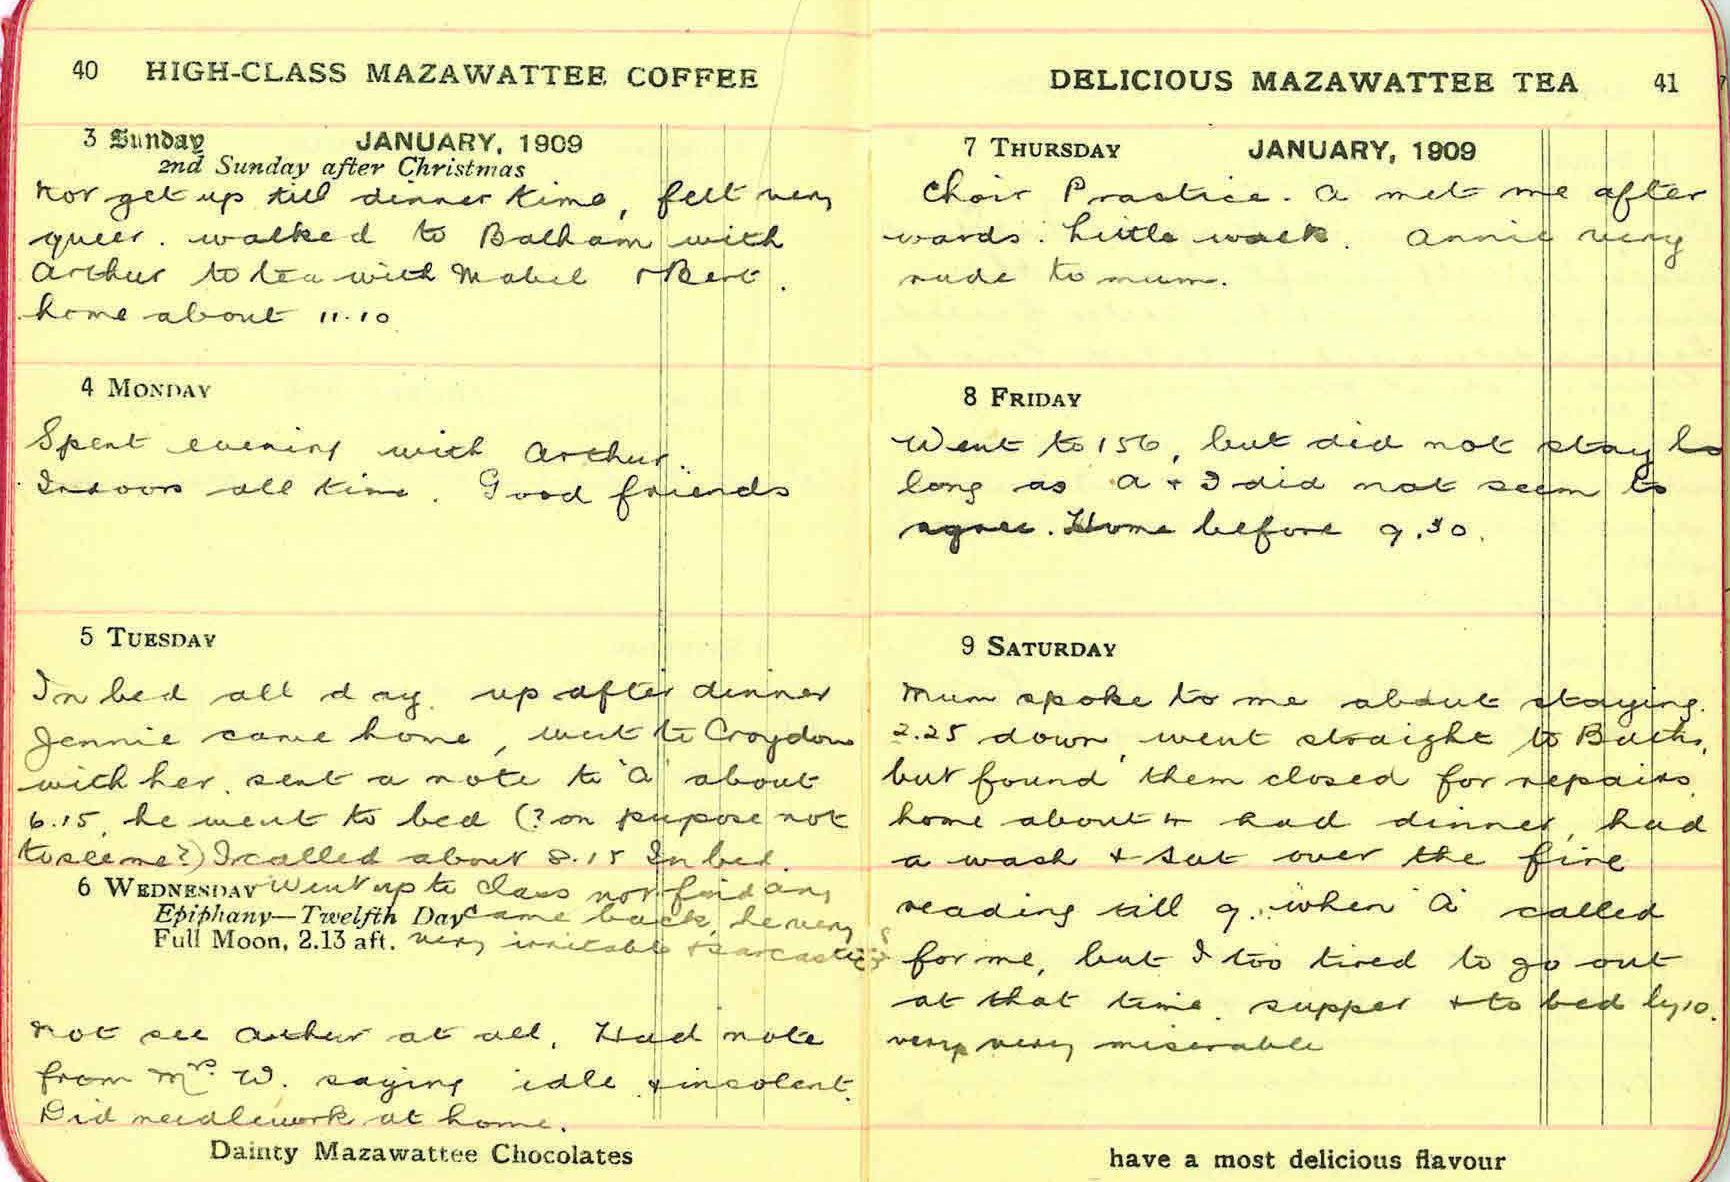 40 HIGH-CLASS MAZAWATTEE COFFEE
3 Sunday JANUARY, 1909
2nd Sunday after Christmas
Not get up till dinner time, felt very
queer. walked to Balham with
Arthur to tea with Mabel & Bert.
home about 11.10
4 MONDAY
Spent evening with Arthur.
Indoors all time. Good friends
5 TUESDAY
In bed all day. up after dinner
Jennie came home, went to Croydon
with her. sent a note to 'A' about
6.15, he went to bed (? on pupose not
to see me?) I called about 8.15 In bed.
6 WEDNESDAY Went up to class not find any
Epiphany—Twelfth Day came back, he very
Full Moon, 2.13 aft. very irritable & sarcastic
Not see Arthur at all. Had note
from Mrs. W. saying idle & insolent.
Did needlework at home.
Dainty Mazawattee Chocolates
DELICIOUS MAZAWATTEE TEA 41
7 THURSDAY JANUARY, 1909
Choir Practice. A met me after
wards. Little walk. Annie very
rude to mum.
8 FRIDAY
Went to 156, but did not stay
long as A & I did not seem to
agree. Home before 9.30.
9 SATURDAY
Mum spoke to me about staying.
2.25 down, went straight to Baths,
but found them closed for repairs.
home about 4 had dinner, had
a wash & sat over the fire
reading till 9. when 'A' called
for me, but I too tired to go out
at that time. supper & to bed by 10.
very very miserable
have a most delicious flavour